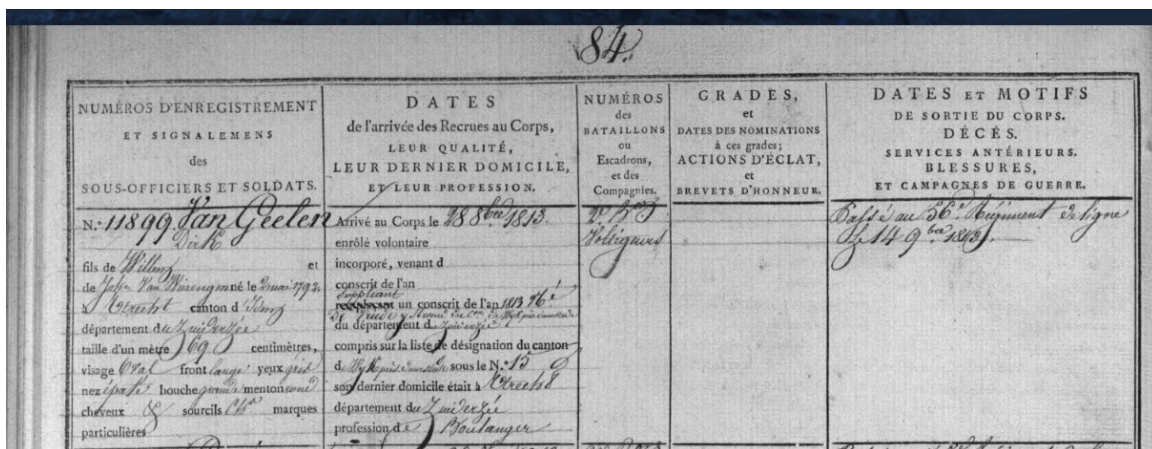 84.
NUMÉROS D'ENREGISTREMENT
ET SIGNALEMENS
des
SOUS-OFFICIERS ET SOLDATS.
DATES
de l'arrivée des Recrues au Corps,
LEUR QUALITÉ,
LEUR DERNIER DOMICILE,
ET LEUR PROFESSION.
NUMÉROS
des
BATAILLONS
ou
Escadrons,
et des
Compagnies.
GRADES,
et
DATES DES NOMINATIONS
à ces grades;
ACTIONS D'ÉCLAT,
et
BREVETS D'HONNEUR.
DATES ET MOTIFS
DE SORTIE DU CORPS.
DÉCÈS.
SERVICES ANTÉRIEURS.
BLESSURES,
ET CAMPAGNES DE GUERRE.
N.º 11899 Van Geelen
Dirk
fils de Willem et
de Van né le 2 mai 1792
à Utrecht canton d'Idem
département du Zuiderzée
taille d'un mètre 69 centimètres,
visage Oval front large yeux gris
nez épaté bouche grande menton rond
cheveux & sourcils marques
particulières
Arrivé au Corps le 28 8bre 1813.
enrôlé volontaire
incorporé, venant d
conscrit de l'an
suppléant
un conscrit de l'an 1813
du département du Zuiderzée
compris sur la liste de désignation du canton
de sous le N.º 15
son dernier domicile était à Utrecht
département du Zuiderzée
profession de Boulanger
Voltigeurs
Passé au 56e Régiment de ligne
le 14 9bre 1813.